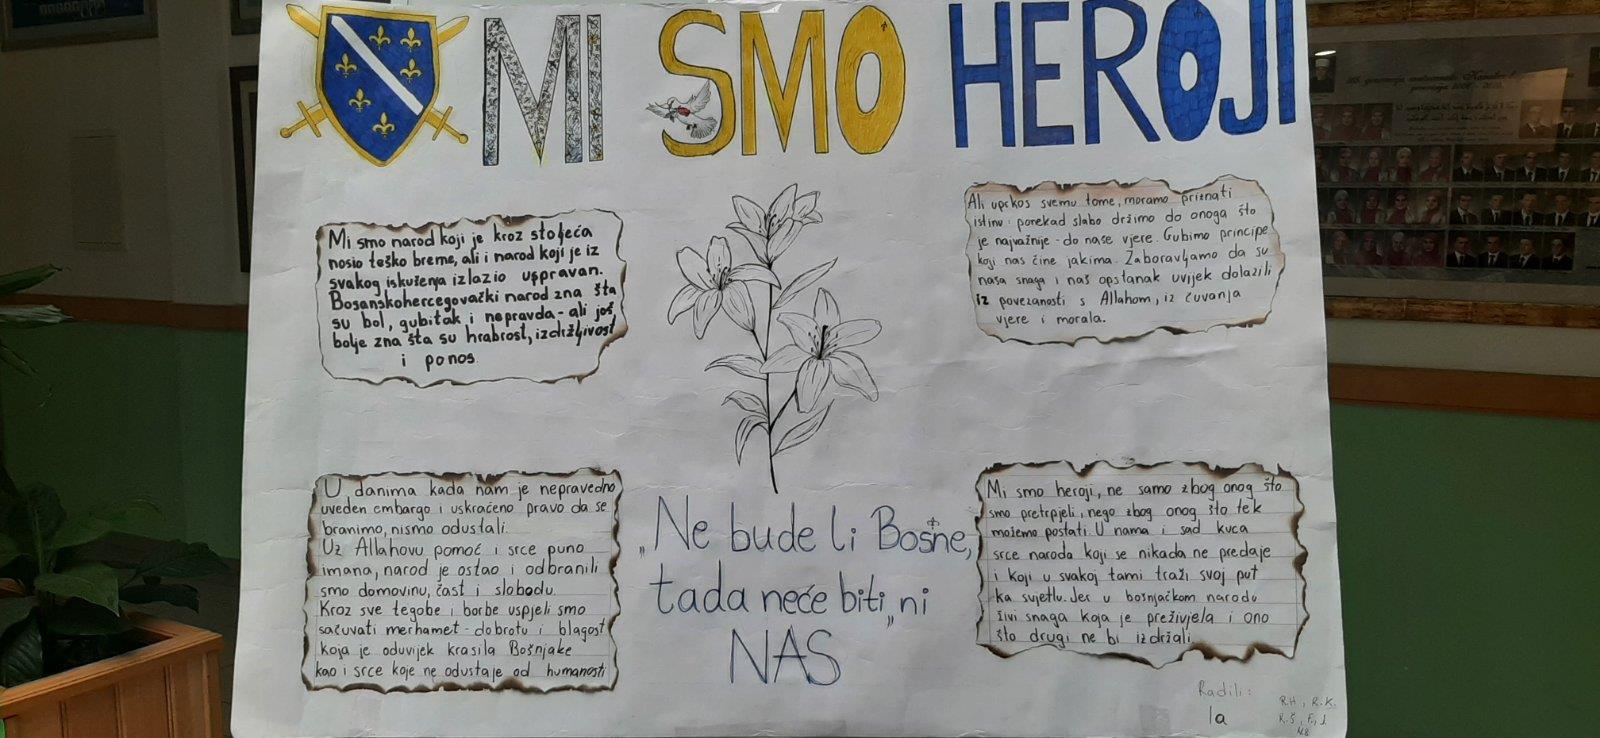 MI SMO HEROJI
Mi smo narod koji je kroz stoljeća
nosio teško breme, ali i narod koji je iz
svakog iskušenja izlazio uspravan.
Bosanskohercegovački narod zna šta
su bol, gubitak i nepravda - ali još
bolje zna šta su hrabrost, izdržljivost
i ponos
Ali uprkos svemu tome, moramo priznati
istinu: ponekad slabo držimo do onoga što
je najvažnije - do naše vjere. Gubimo principe
koji nas čine jakima. Zaboravljamo da su
naša snaga i naš opstanak uvijek dolazili
iz povezanosti s Allahom, iz čuvanja
vjere i morala.
U danima kada nam je nepravedno
uveden embargo i uskraćeno pravo da se
branimo, nismo odustali.
Uz Allahovu pomoć i srce puno
imana, narod je ostao i odbranili
smo domovinu, čast i slobodu.
Kroz sve tegobe i borbe uspjeli smo
sačuvati merhamet - dobrotu i blagost
koja je oduvijek krasila Bošnjake
kao i srce koje ne odustaje od humanosti
„Ne bude li Bosne,
tada neće biti, ni
NAS"
Mi smo heroji, ne samo zbog onog što
smo pretrpjeli, nego zbog onog što tek
možemo postati. U nama i sad kuca
srce naroda koji se nikada ne predaje
i koji u svakoj tami traži svoj put
ka svjetlu. Jer u bošnjačkom narodu
živi snaga koja je preživjela i ono
što drugi ne bi izdržali.
Radili:
Ia
R.H., R.K.
R.Š,